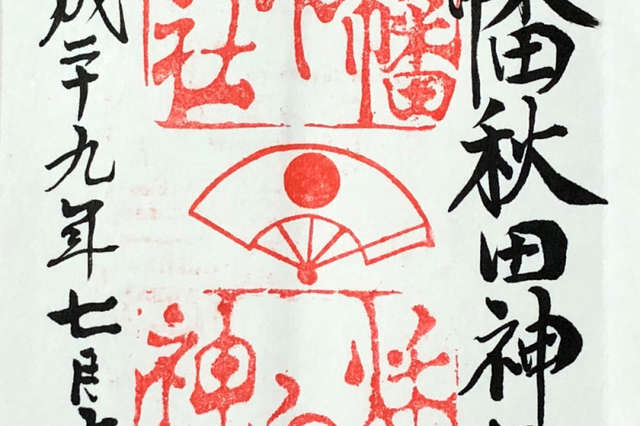 幡秋田神
幡
社
佐
神
成二十九年七月